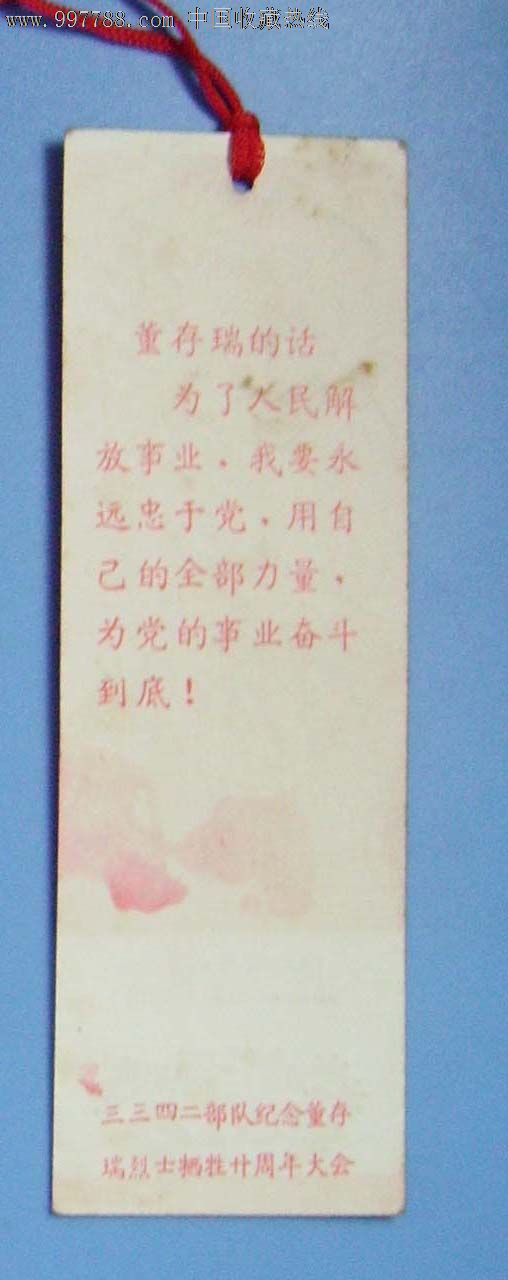 www.997788.com 中国收藏热线
董存瑞的话
为了人民解
放事业，我要永
远忠于党，用自
己的全部力量，
为党的事业奋斗
到底！
三三四二部队纪念董存
瑞烈士牺牲廿周年大会